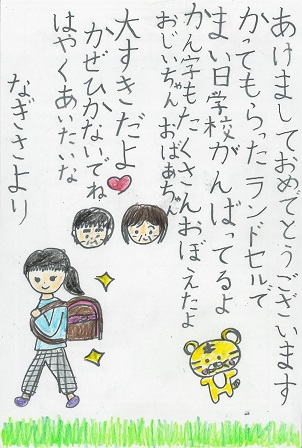 あけましておめでとうございます
かってもらったランドセルで
まい日学校がんばってるよ
かん字もたくさんおぼえたよ
おじいちゃん おばあちゃん
大すきだよ
かぜひかないでね
はやくあいたいな
なぎさより